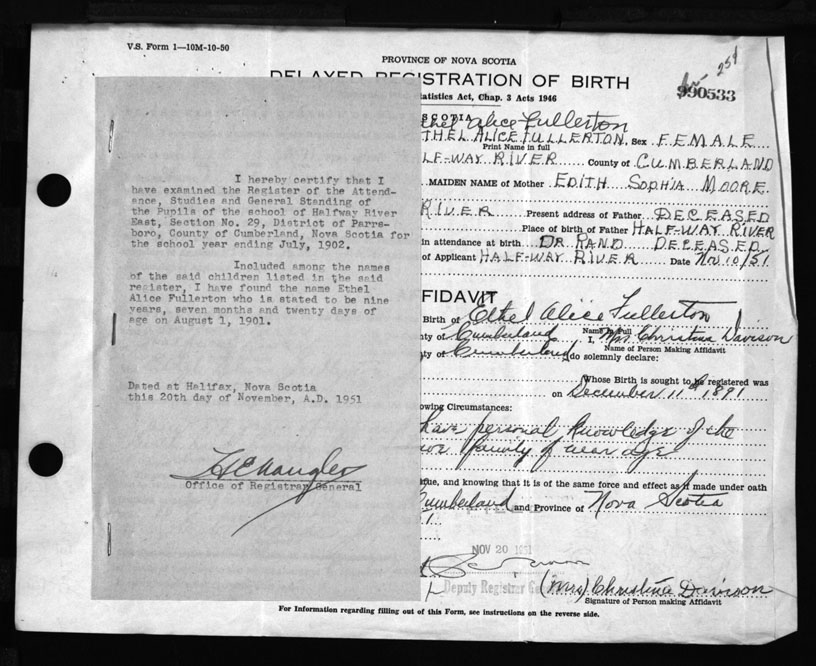 V.S. Form 1—10M-10-50
PROVINCE OF NOVA SCOTIA
DELAYED REGISTRATION OF BIRTH
tatistics Act, Chap. 3 Acts 1946
251
990533
SCOTIA
thel Alice Fullerton
THEL ALICE FULLERTON, Sex FEMALE
Print Name in full
LF-WAY RIVER County of CUMBERLAND
MAIDEN NAME of Mother EDITH SOPHIA MOORE
RIVER Present address of Father DECEASED
Place of birth of Father HALF-WAY RIVER
in attendance at birth DR RAND DECEASED
of Applicant HALF-WAY RIVER Date Nov 10/51
I hereby certify that I
have examined the Register of the Attend-
ance, Studies and General Standing of
the Pupils of the school of Halfway River
East, Section No. 29, District of Parrs-
boro, County of Cumberland, Nova Scotia for
the school year ending July, 1902.
Included among the names
of the said children listed in the said
register, I have found the name Ethel
Alice Fullerton who is stated to be nine
years, seven months and twenty days of
age on August 1, 1901.
Dated at Halifax, Nova Scotia
this 20th day of November, A.D. 1951
Office of Registrar General
FFIDAVIT
Birth of Ethel Alice Fullerton
Name in Full
ty of Cumberland I, Mrs Christina Davison
Name of Person Making Affidavit
ty of Cumberland do solemnly declare:
Whose Birth is sought to be registered was
on December 11 1891
owing Circumstances:
have personal knowledge of the
family of near age
rue, and knowing that it is of the same force and effect as if made under oath
Cumberland and Province of Nova Scotia
1
NOV 20 1951
Deputy Registrar Ge
(Mrs) Christina Davison
Signature of Person making Affidavit
For Information regarding filling out of this Form, see instructions on the reverse side.